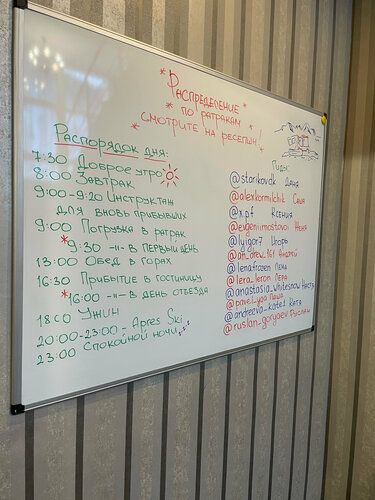 * Распределение *
* по ратракам *
* смотрите на ресепшн!
Распорядок дня:
7:30 Доброе утро
8:00 Завтрак
9:00-9:20 Инструктаж
для вновь прибывших
9:00 Погрузка в ратрак
* 9:30 -"- в первый день
13:00 Обед в горах
16:30 Прибытие в гостиницу
* 16:00 -"- в день отъезда
18:00 Ужин
20:00-23:00 - Apres Ski
23:00 Спокойной ночи z z z
Гиды:
@starikovdk Даня
@alexkormilchik Саня
@x.p.f Ксения
@evgeniimostovoi Женя
@lyigor7 Игорь
@an_drew.161 Андрей
@lenafrozen Лена
@lera_leron Лера
@anastasia_whitesnow Настя
@pavel_yog Паша
@andreeva_kate1 Катя
@ruslan_goryaev Руслан